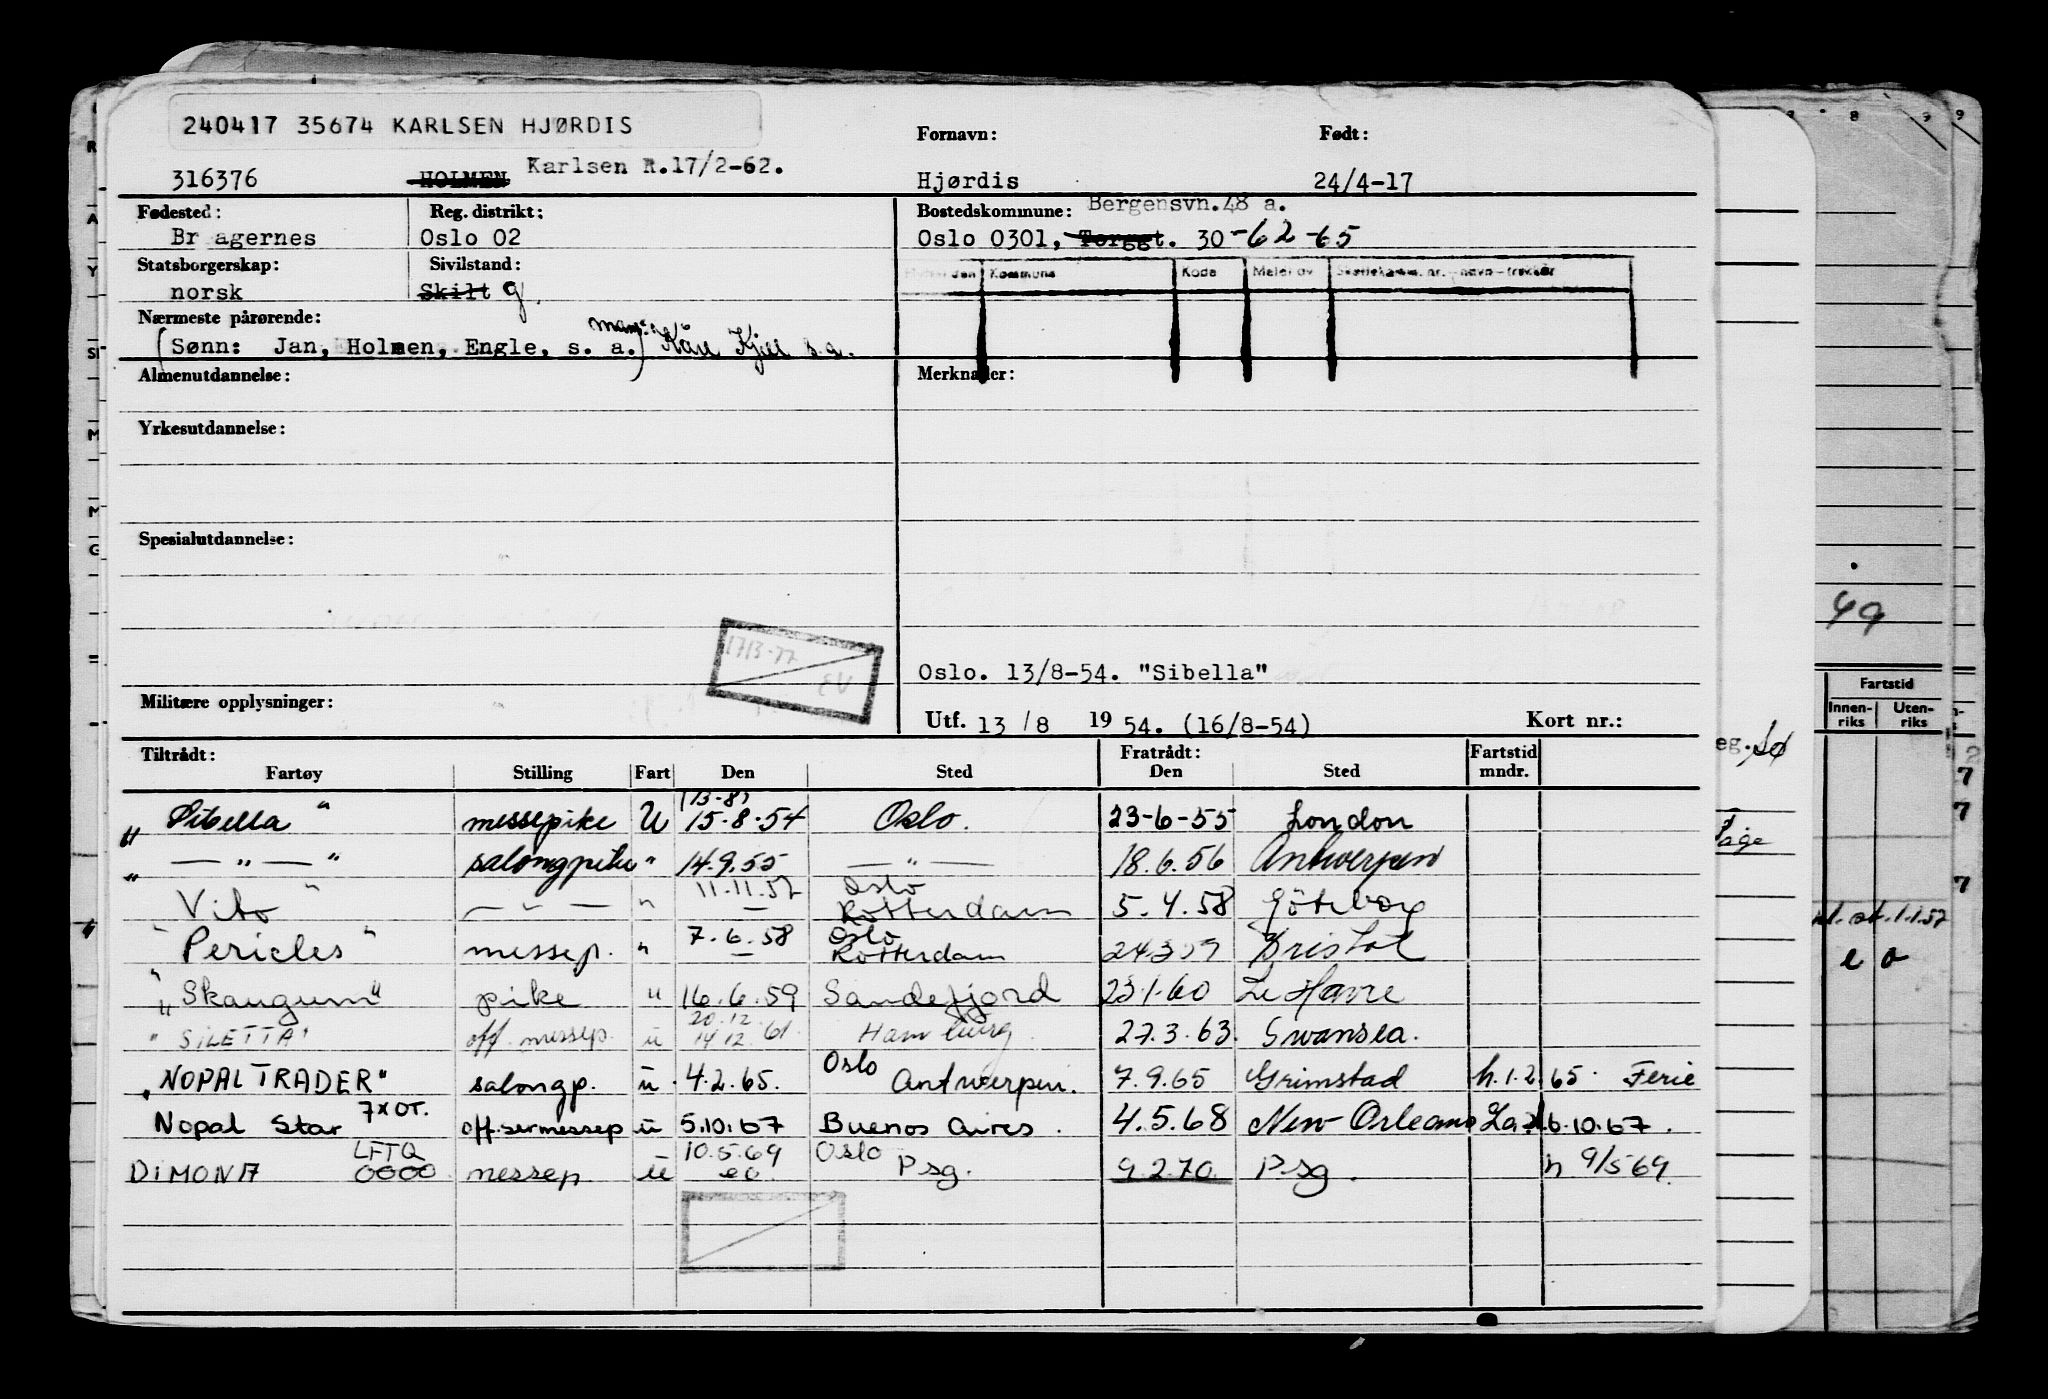 240417 35674 KARLSEN HJØRDIS
Fornavn: Født:
316376 HOLMEN Karlsen R.17/2-62. Hjørdis 24/4-17
Fødested: Reg. distrikt: Bostedskommune: Bergensvn.48 a.
Br agernes Oslo 02 Oslo 0301, Torggt. 30-62-65
Statsborgerskap: Sivilstand:
Kommune Kode
norsk Skilt g
Nærmeste pårørende:
(Sønn: Jan, Holmen, Engle, s. a.) Kåre Kjell s.a.
Almenutdannelse: Merknader:
Yrkesutdannelse:
Spesialutdannelse:
Oslo. 13/8-54. "Sibella"
Militære opplysninger: Utf. 13/8 1954. (16/8-54) Kort nr.:
Tiltrådt: Fratrådt: Fartstid
Fartøy Stilling Fart Den Sted Den Sted mndr.
(13-8)
"Sibella" messepike U 15.8.54 Oslo. 23-6-55 London
" — " — " salongpike " 14.9.55 — " — 18.6.56 Antwerpen
11.11.57 Oslo
"Vito" — " — " — Rotterdam 5.4.58 Göteborg
7.6.58 Oslo
"Pericles" messep. " — Rotterdam 24.3.59 Bristol
"Skaugum" pike " 16.6.59 Sandefjord 23.1.60 Le Havre
20.12
"SILETTA" off. messep. u 14.12.61 Hamburg 27.3.63. Swansea.
Oslo
"NOPAL TRADER" salongp. u. 4.2.65. Antwerpen. 7.9.65 Grimstad h.1.2.65. Ferie
7XOT.
Nopal Star off.sermessep u 5.10.67 Buenos Aires. 4.5.68 New Orleans La. 6.10.67.
LFTQ 10.5.69 Oslo
DIMONA OOOO messep u eo. Psg. 9.2.70. Psg. h 9/5 69.
49
Fartstid
Innen-riks Uten-riks
1.1.57
e o